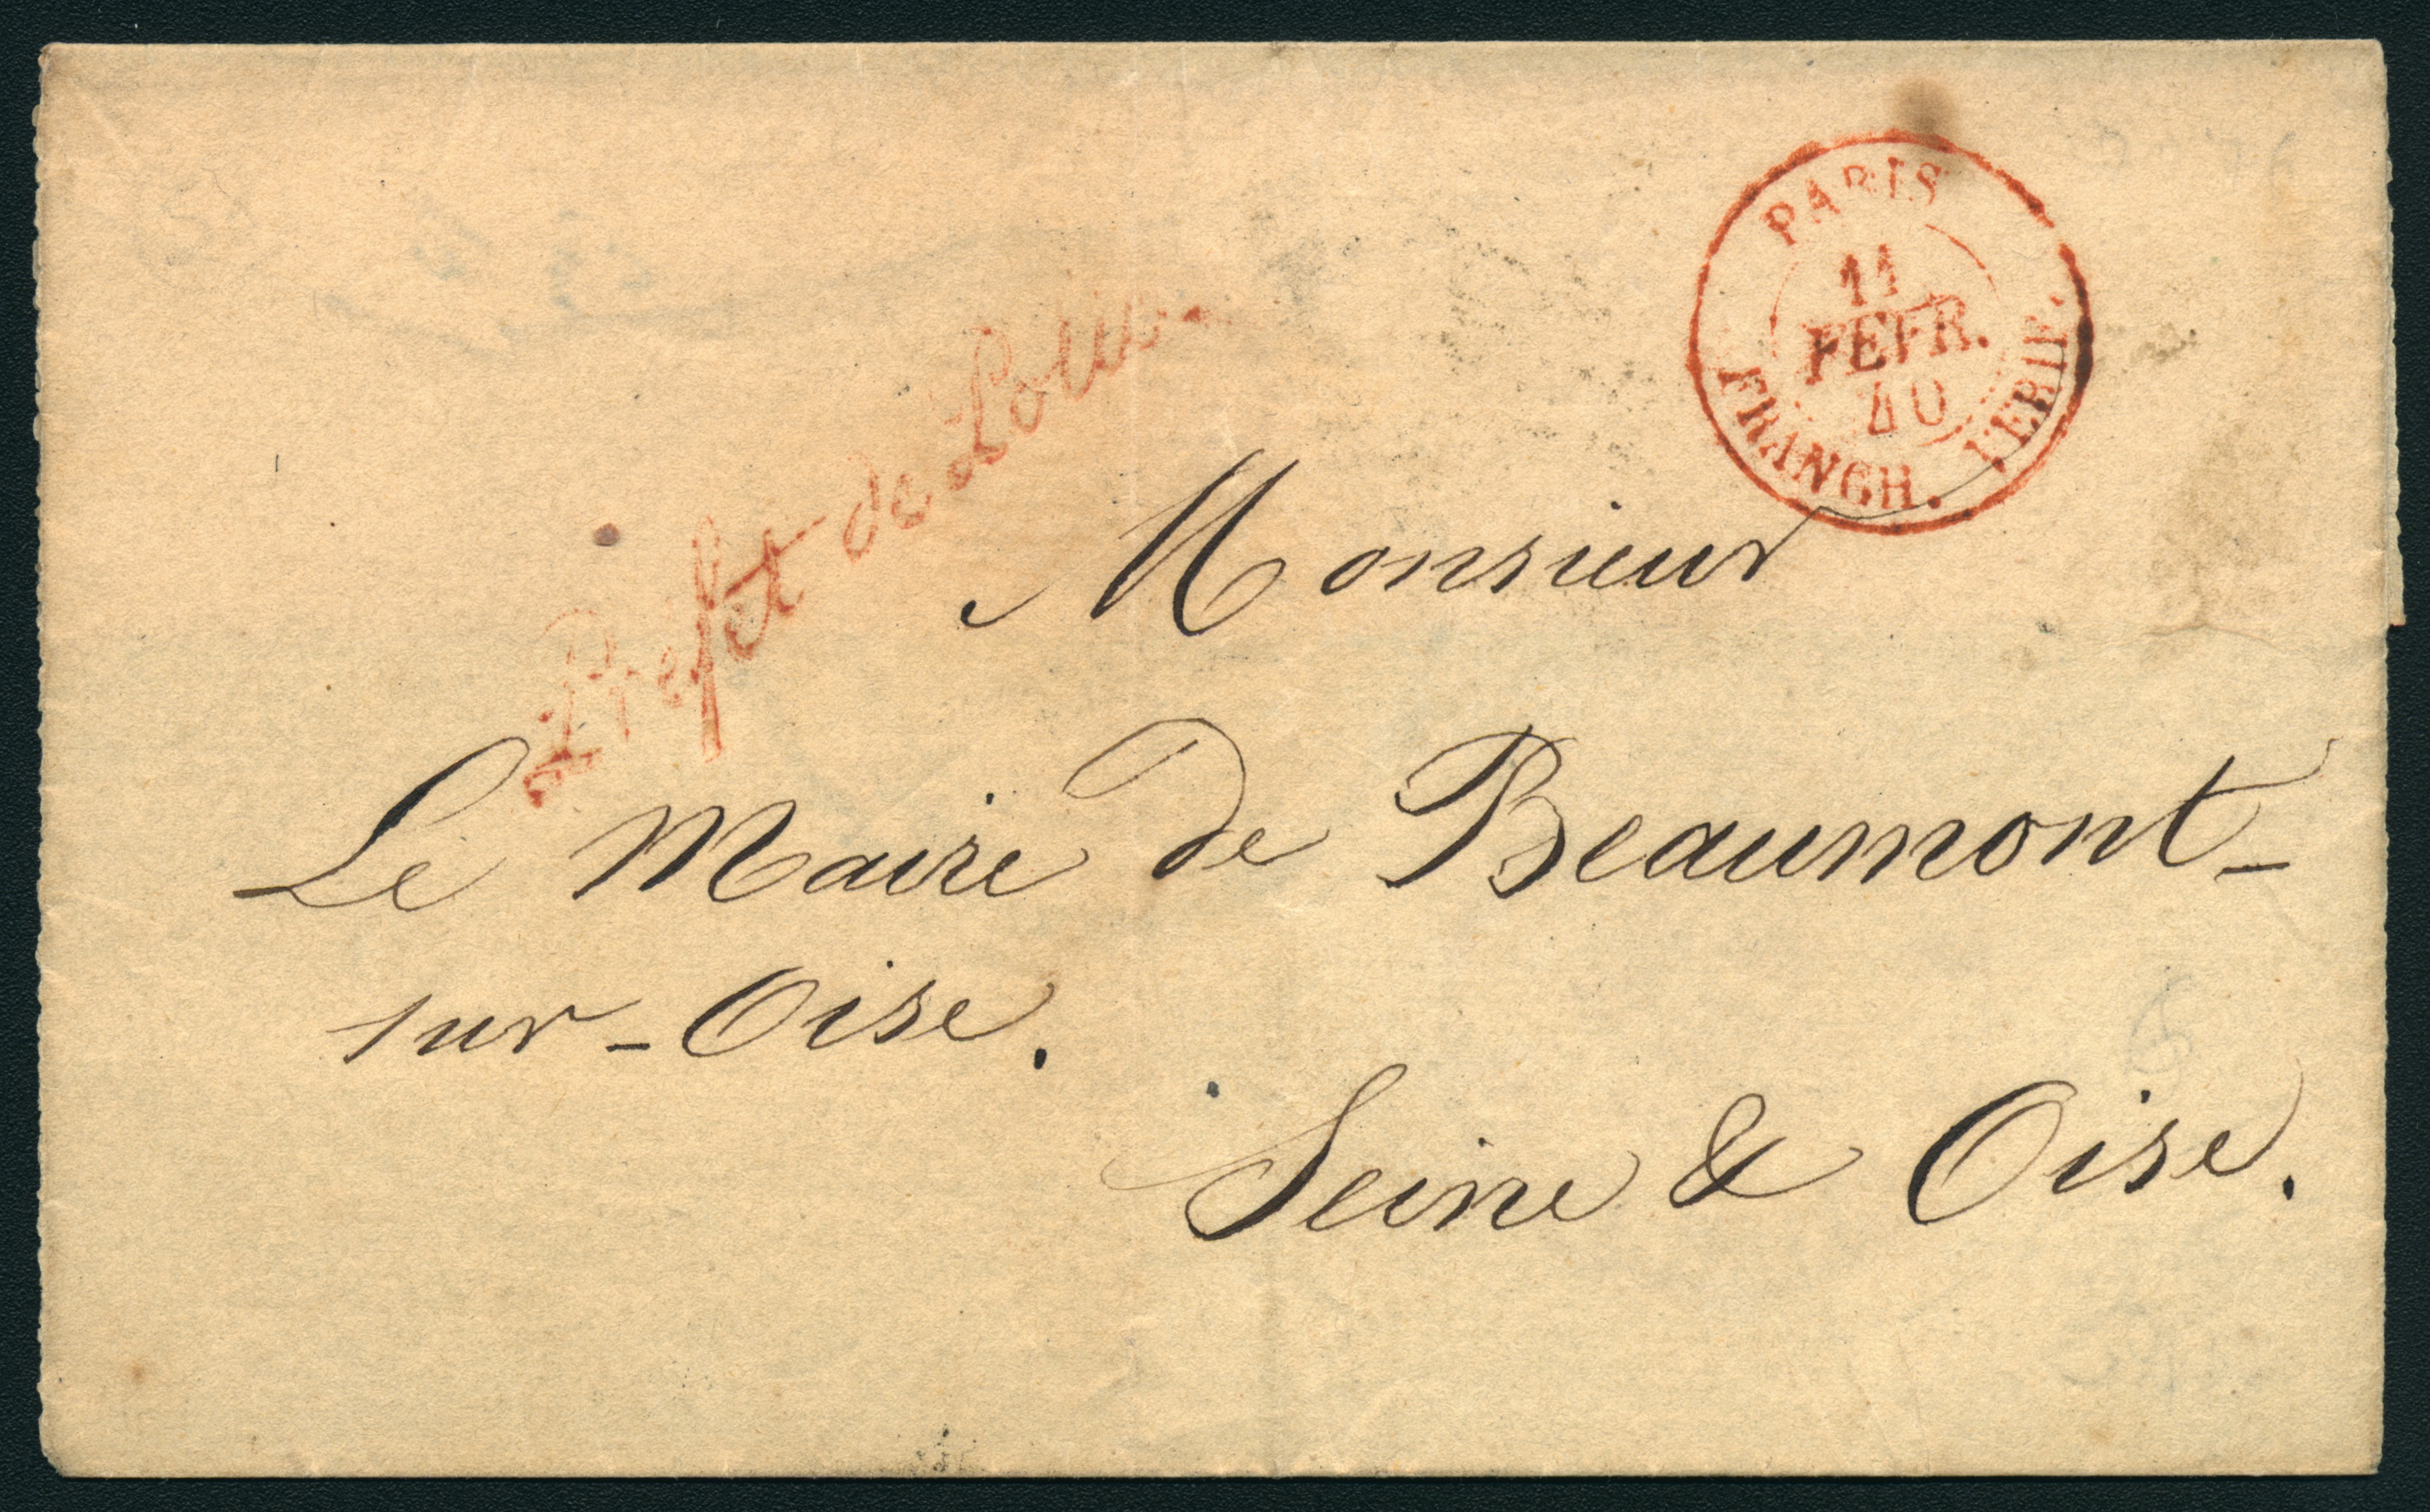 PARIS
11
FEFR.
40
FRANCH. VERIF.
Prefet de Police
Monsieur
Le Maire de Beaumont-
sur-Oise.
Seine & Oise.